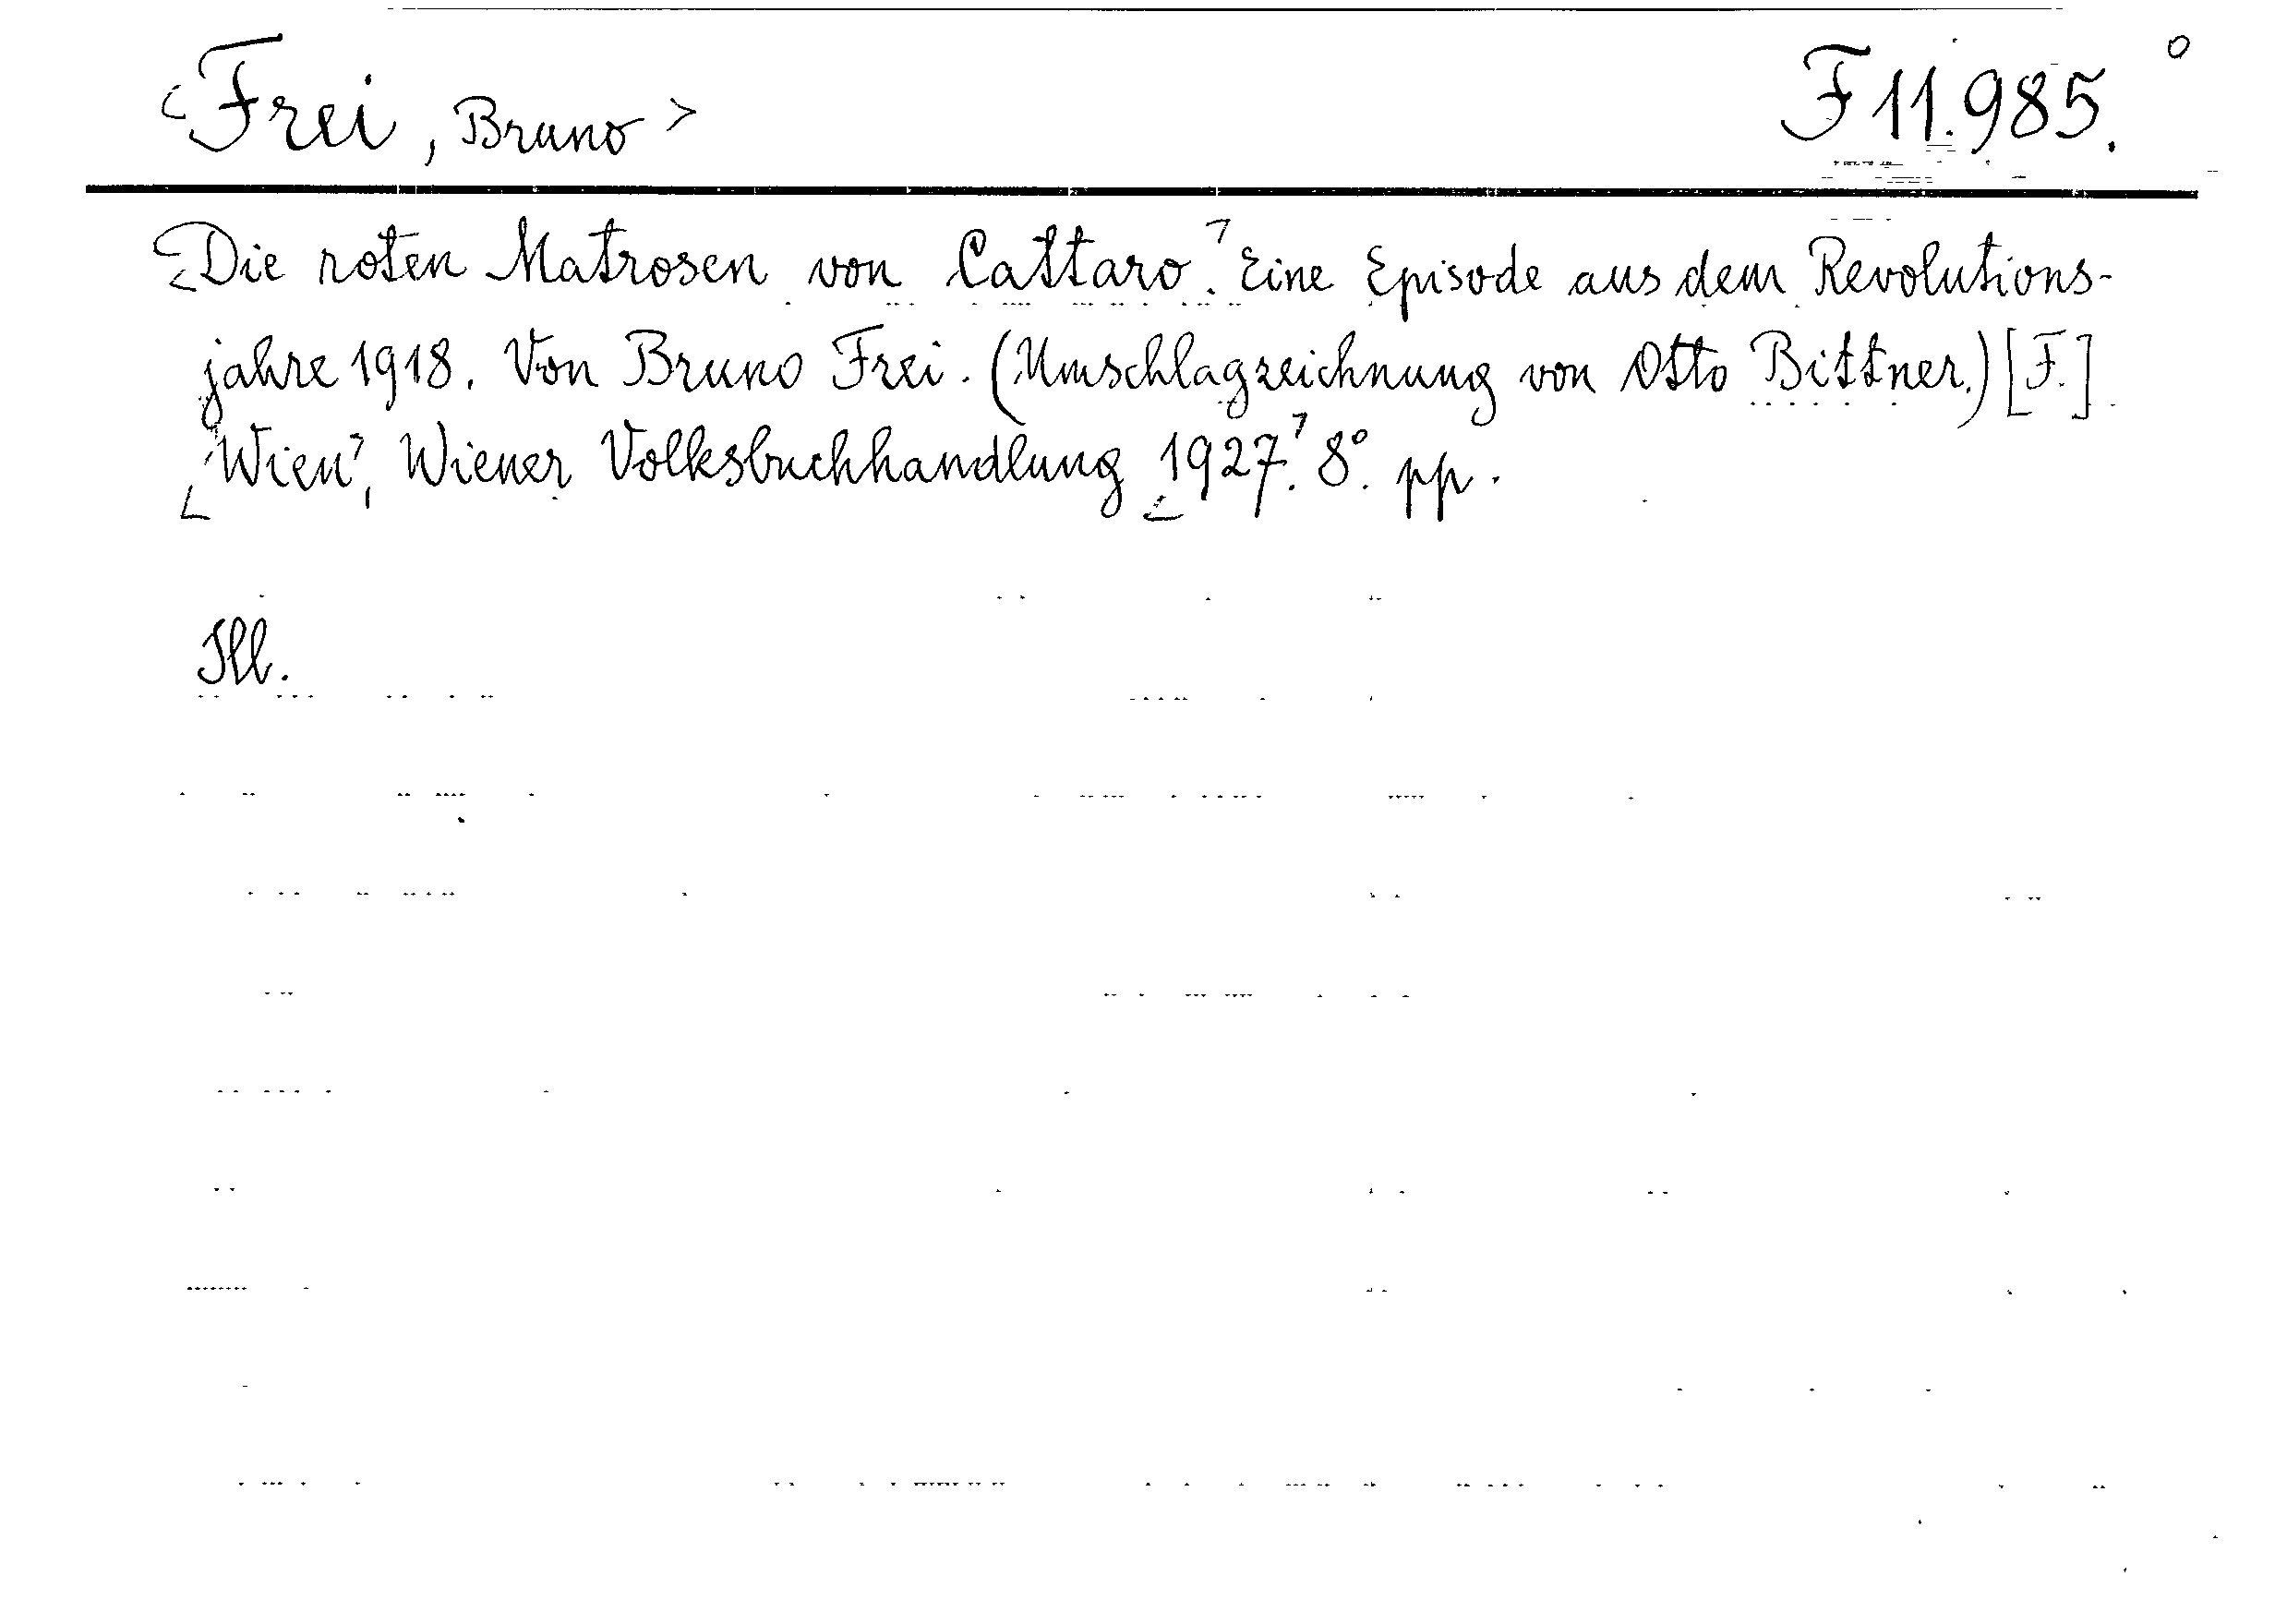 <Frei, Bruno> F 11.985. o
Die roten Matrosen von Cattaro. Eine Episode aus dem Revolutions-
jahre 1918. Von Bruno Frei. (Umschlagzeichnung von Otto Bittner.) [F.]
Wien, Wiener Volksbuchhandlung 1927. 8°. pp.
Ill.